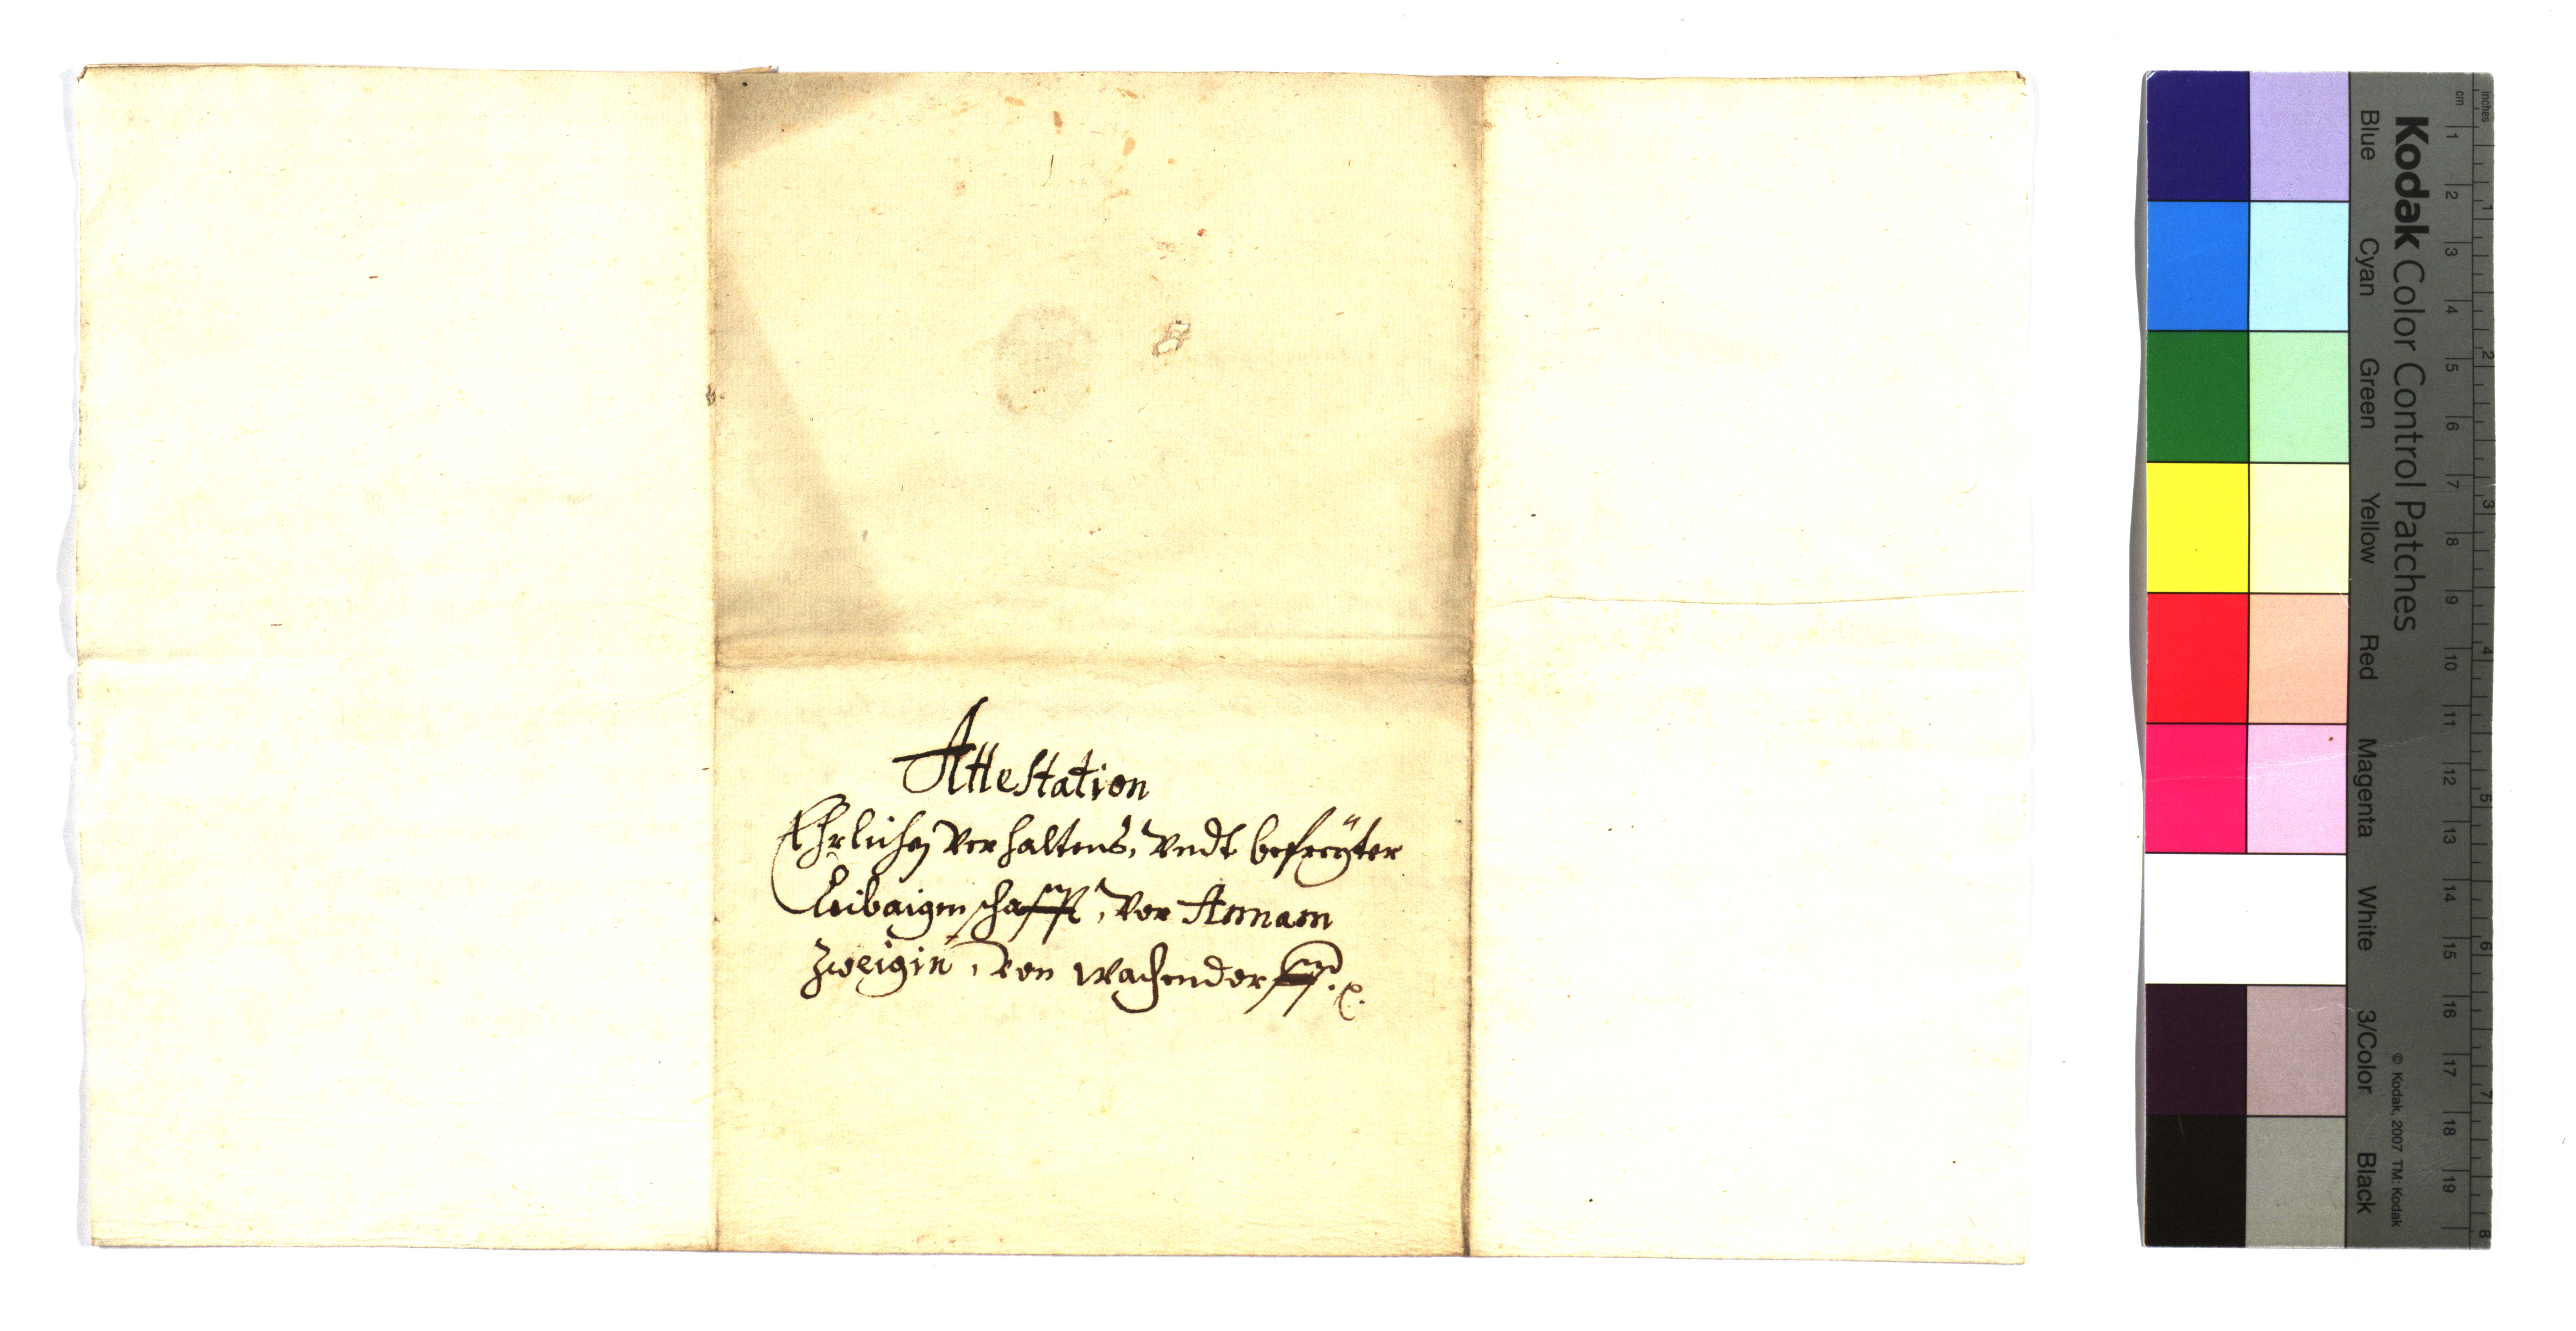 Attestation
Ehrlichen verhaltens, vndt befreÿter
Leibaigenschafft, vor Annam
Zweigin, von Wachendorff. p.
Kodak Color Control Patches
Blue Cyan Green Yellow Red Magenta White 3/Color Black
© Kodak, 2007 TM: Kodak
cm 1 2 3 4 5 6 7 8 9 10 11 12 13 14 15 16 17 18 19
inches 1 2 3 4 5 6 7 8